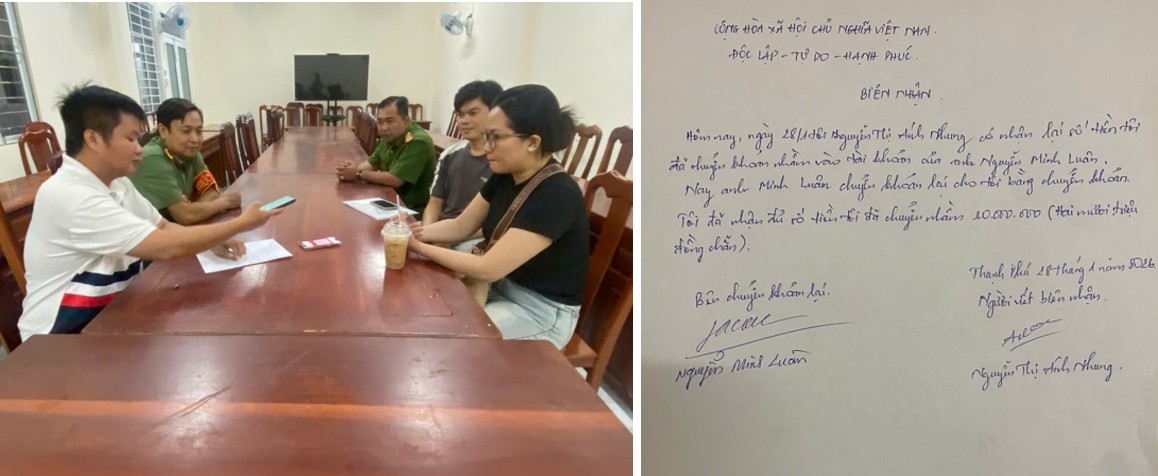 CỘNG HÒA XÃ HỘI CHỦ NGHĨA VIỆT NAM.
ĐỘC LẬP - TỰ DO - HẠNH PHÚC.
BIÊN NHẬN.
Hôm nay, ngày 28/1 tôi Nguyễn Thị Ánh Nhung có nhận lại số tiền tôi
đã chuyển khoản nhầm vào tài khoản của anh Nguyễn Minh Luân.
Nay anh Minh Luân chuyển khoản lại cho tôi bằng chuyển khoản.
Tôi đã nhận đủ số tiền tôi đã chuyển nhầm 20.000.000 (Hai mươi triệu
đồng chẵn).
Thạnh Phú 28 tháng 1 năm 2026
Bên chuyển khoản lại.
Người viết biên nhận.
Nguyễn Minh Luân
Nguyễn Thị Ánh Nhung.